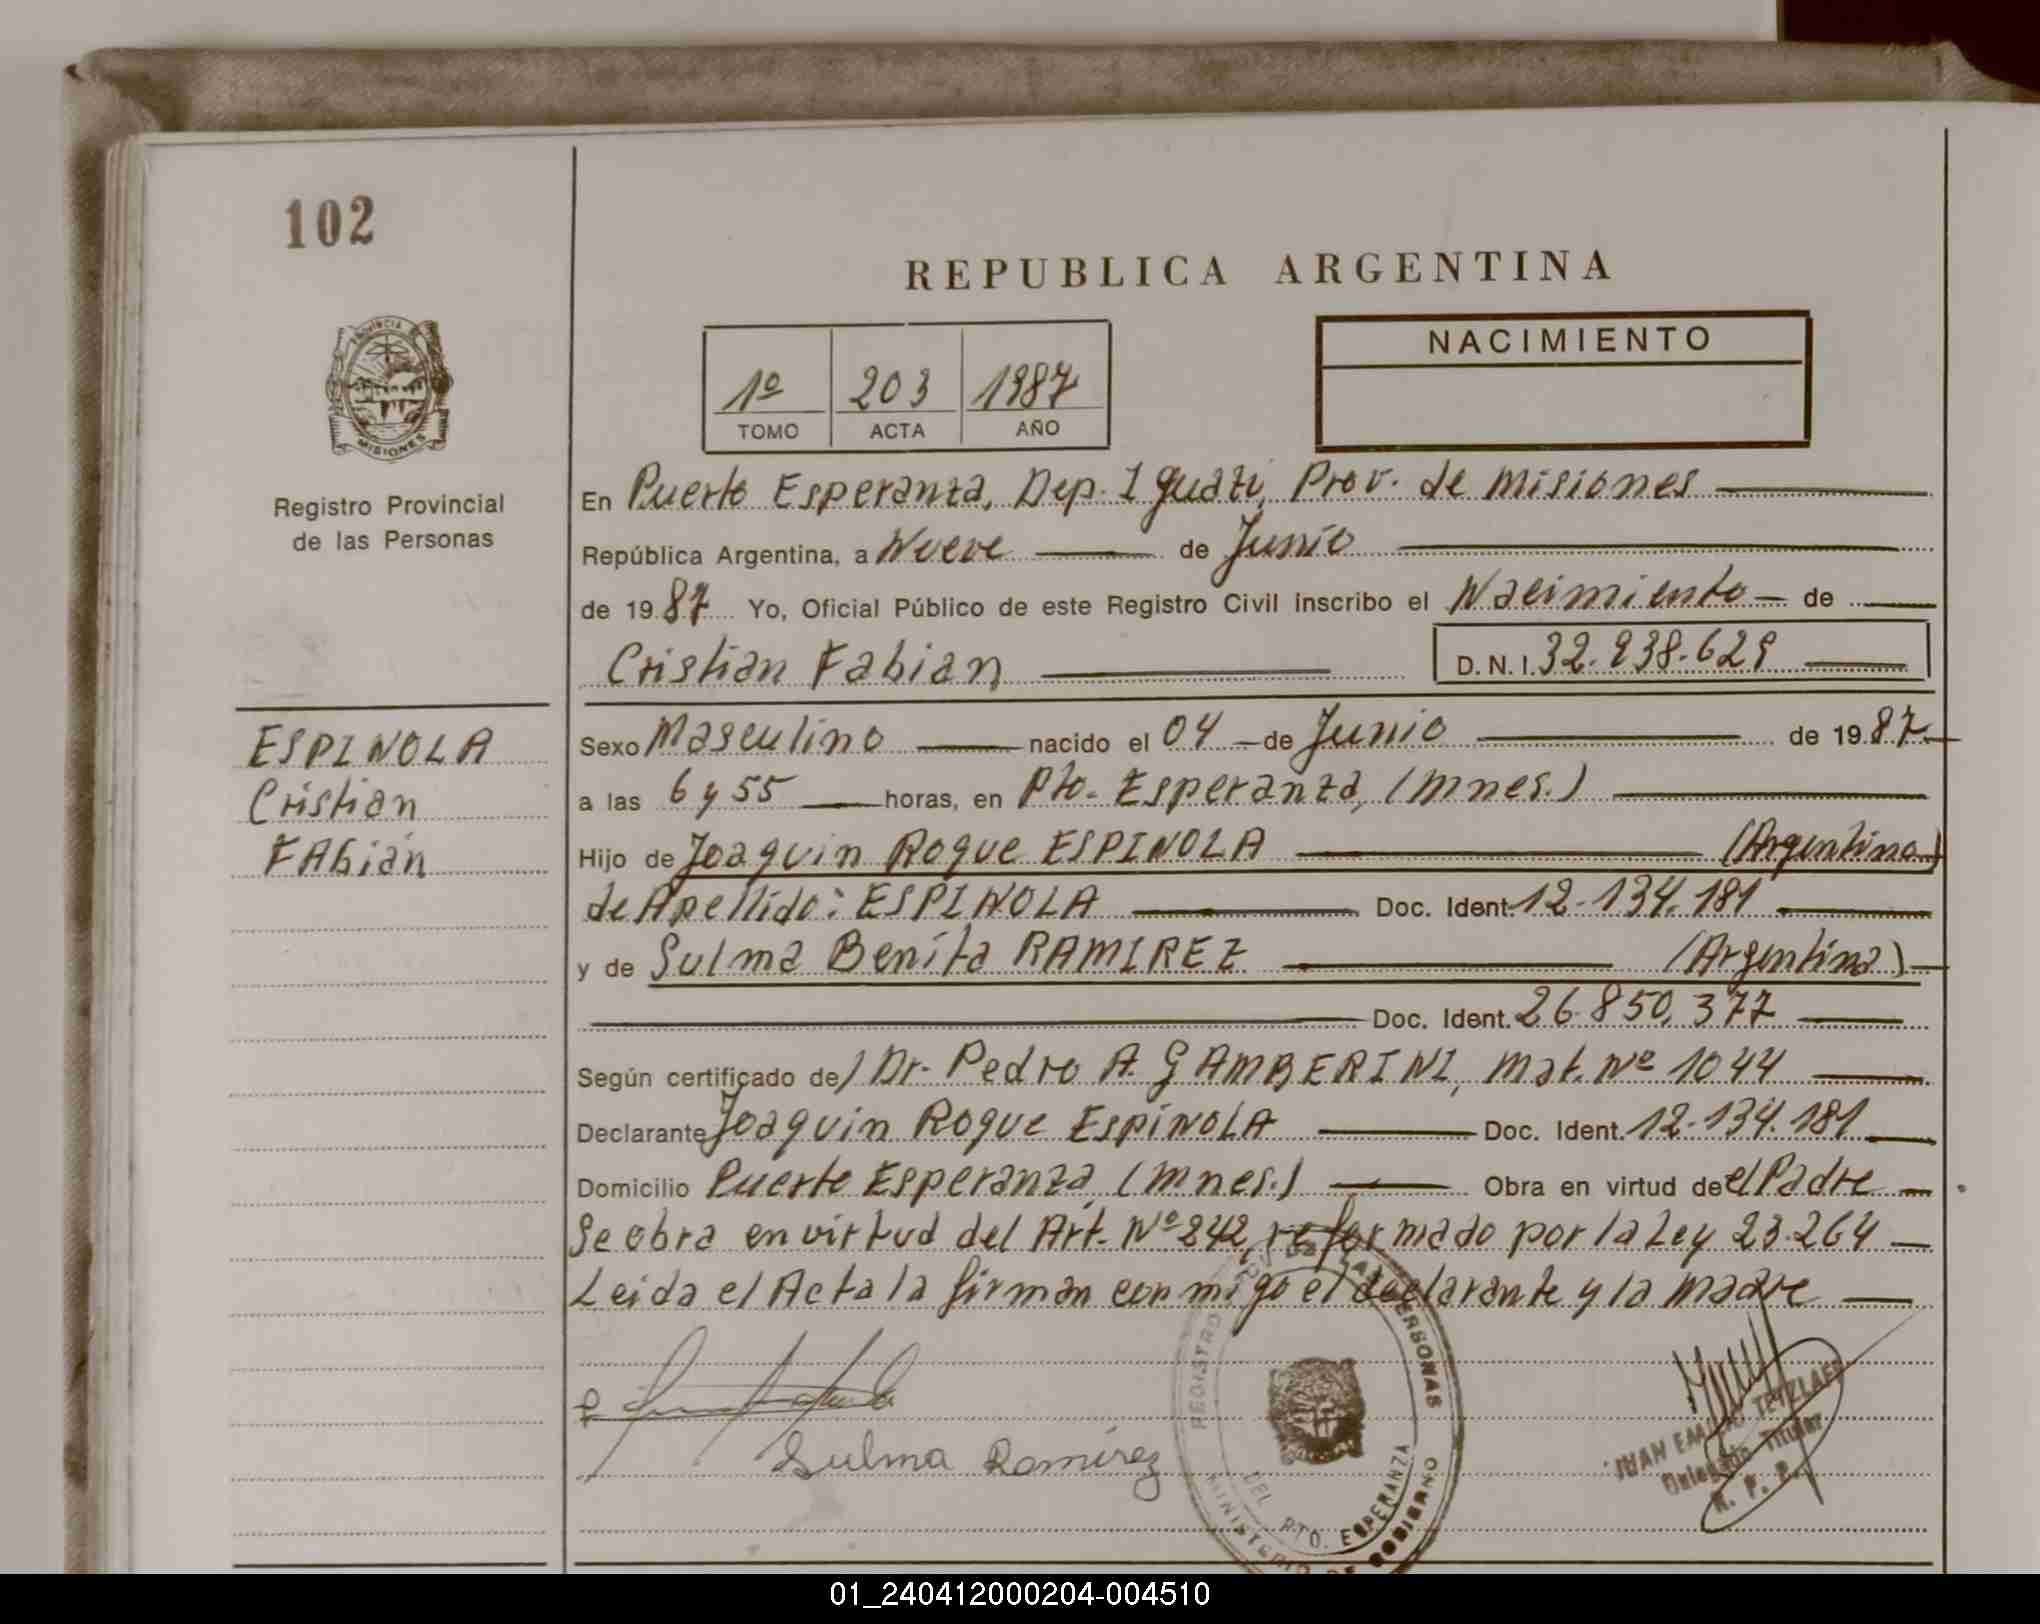 102
REPUBLICA ARGENTINA
NACIMIENTO
1º 203 1987
TOMO ACTA AÑO
PROVINCIA
MISIONES
Registro Provincial
de las Personas
En Puerto Esperanza, Dep. Iguazú, Prov. de Misiones
República Argentina, a Nueve de Junio
de 1987 Yo, Oficial Público de este Registro Civil inscribo el Nacimiento de
Cristian Fabian D.N.I. 32.938.629
ESPINOLA
Cristian
FAbián
Sexo Masculino nacido el 04 de Junio de 1987
a las 6 y 55 horas, en Pto. Esperanza, (Mnes.)
Hijo de Joaquin Roque ESPINOLA (Argentino)
de Apellido: ESPINOLA Doc. Ident. 12.134.181
y de Sulma Benita RAMIREZ (Argentina)
Doc. Ident. 26.850.377
Según certificado de Dr. Pedro A. GAMBERINI, Mat. Nº 1044
Declarante Joaquin Roque EspinoLA Doc. Ident. 12.134.181
Domicilio Puerto Esperanza, (Mnes.) Obra en virtud de el Padre
Se obra en virtud del Art. Nº 242, reformado por la Ley 23.264
Leida el Acta la firman conmigo el declarante y la madre
Sulma Ramírez
REGISTRO PERSONAS
DEL PTO. ESPERANZA
MINISTERIO DE GOBIERNO
JUAN EMILIO TETZLAFF
Delegado Titular
R. P. P.
01_240412000204-004510